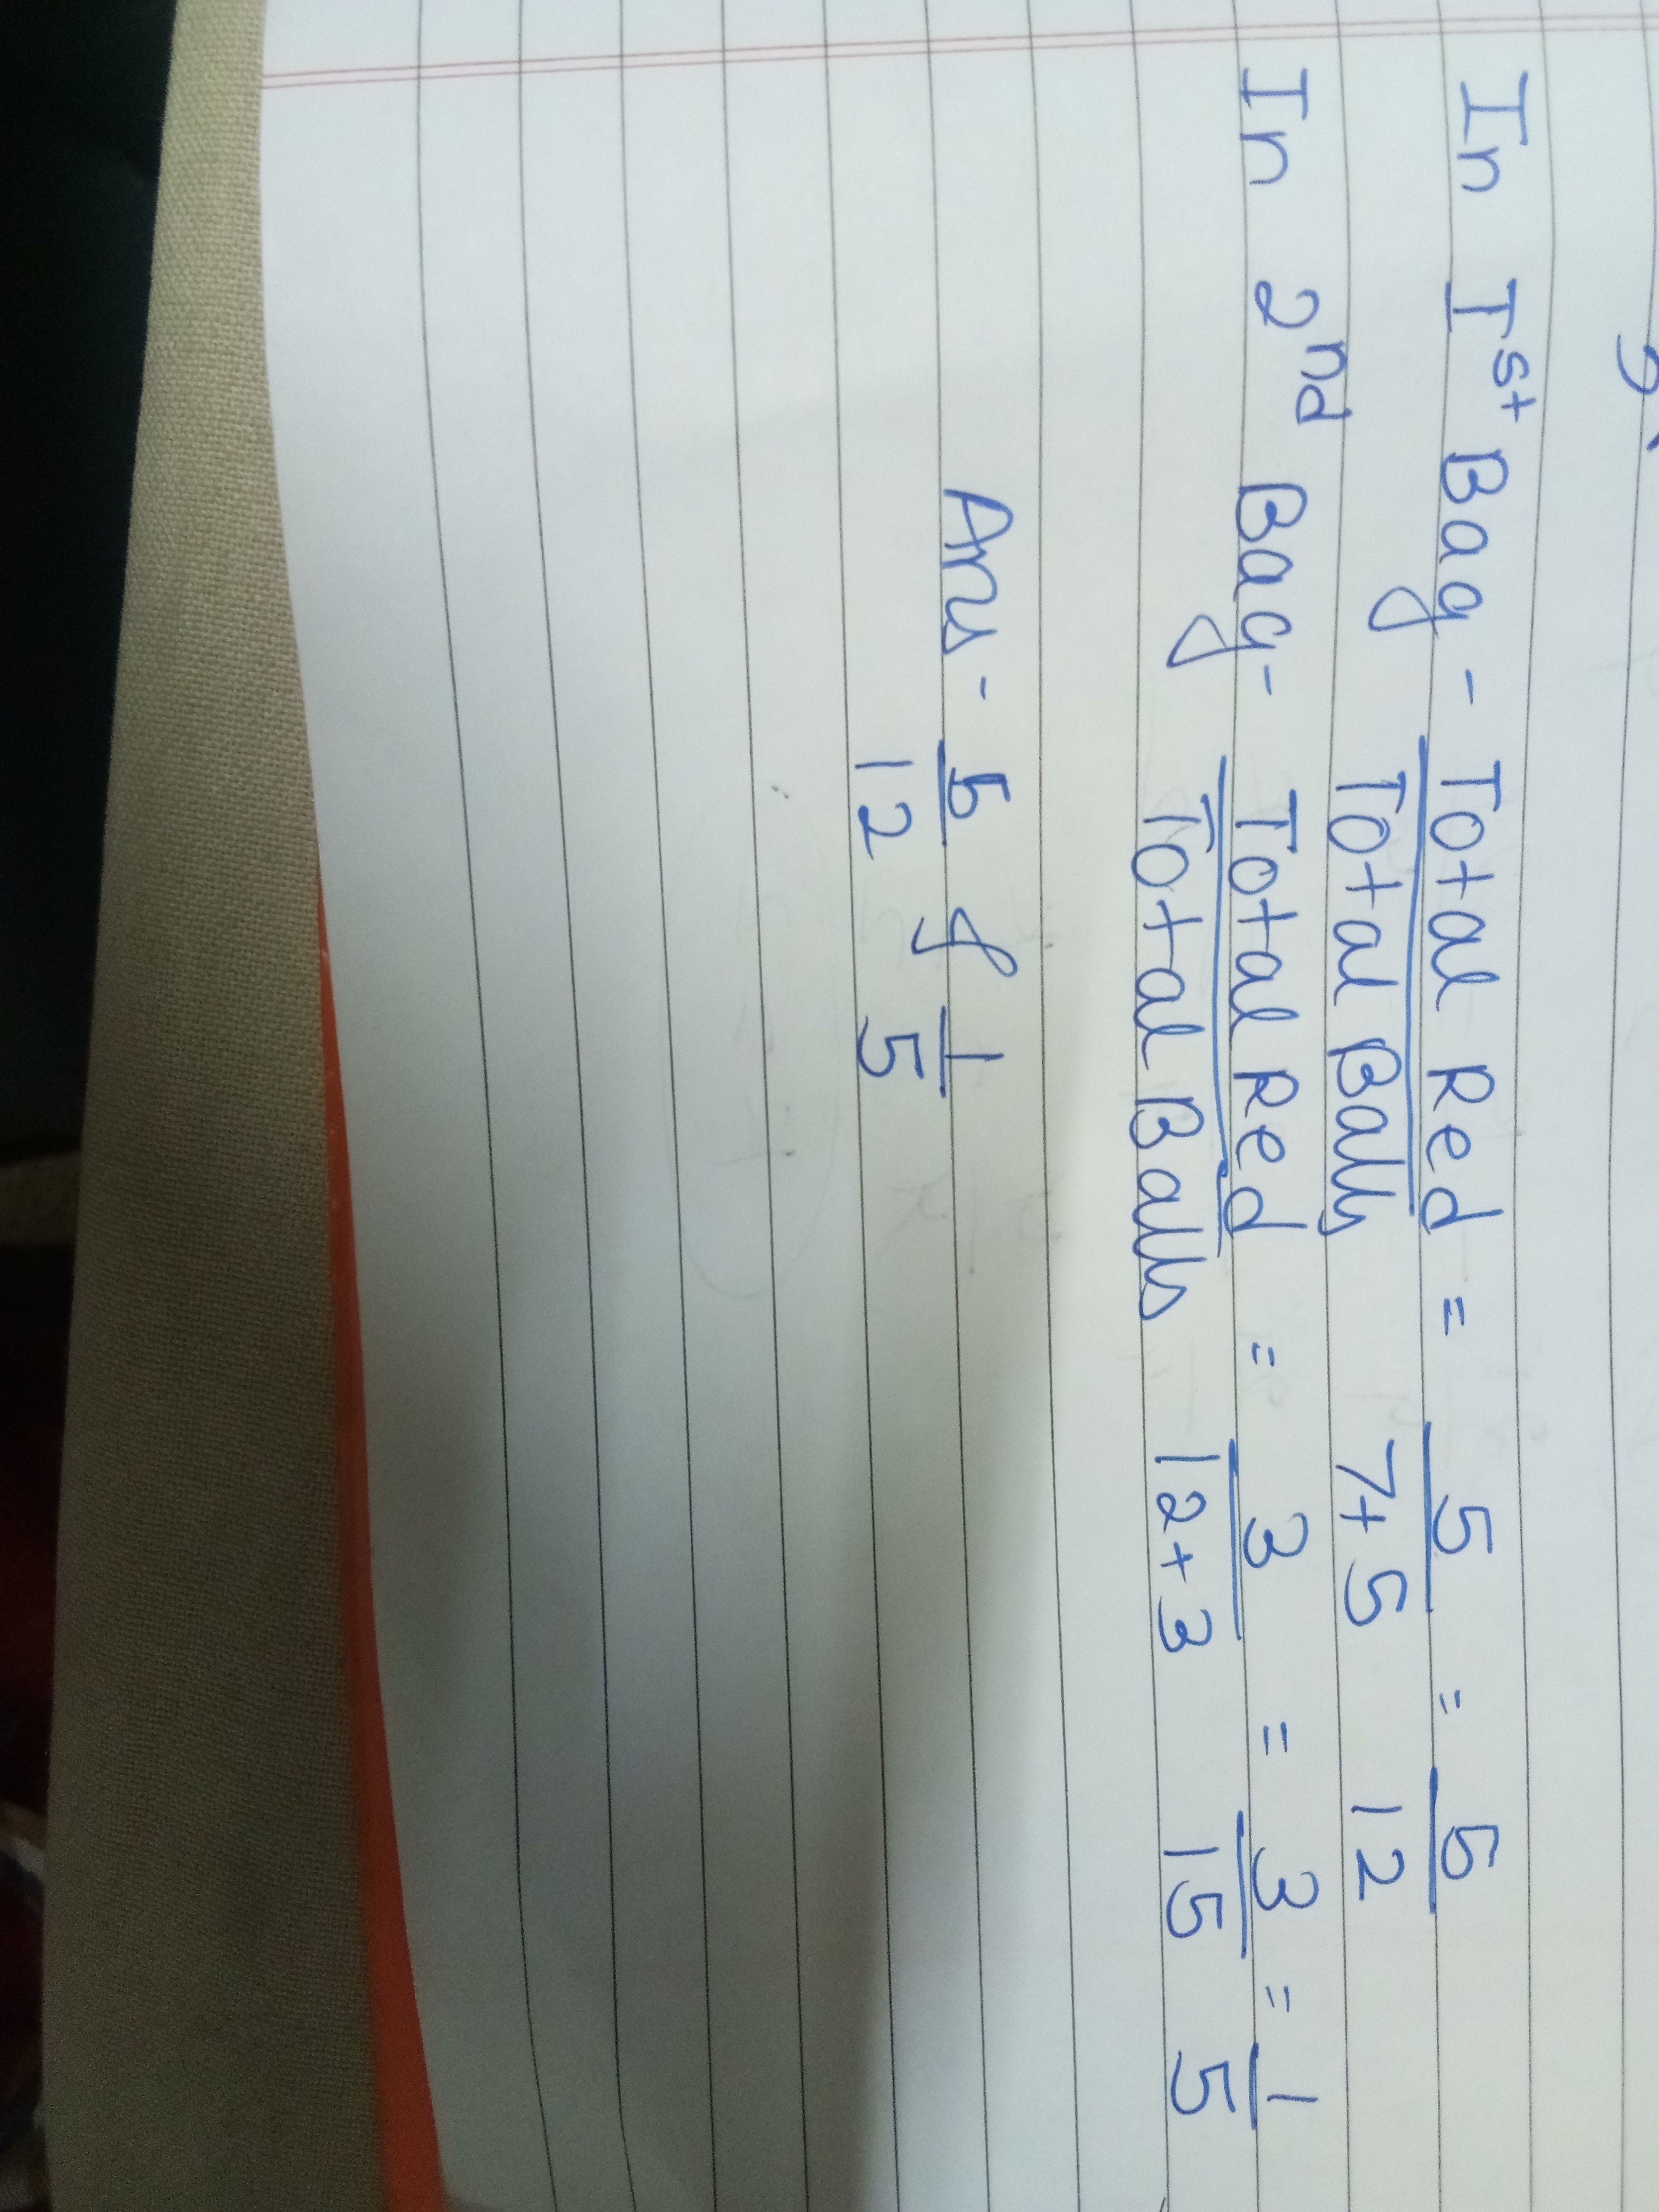 In Ist Bag - Total Red / Total Balls = 5 / 7+5 = 5 / 12
In 2nd Bag - Total Red / Total Balls = 3 / 12+3 = 3 / 15 = 1 / 5
Ans - 5 / 12 & 1 / 5